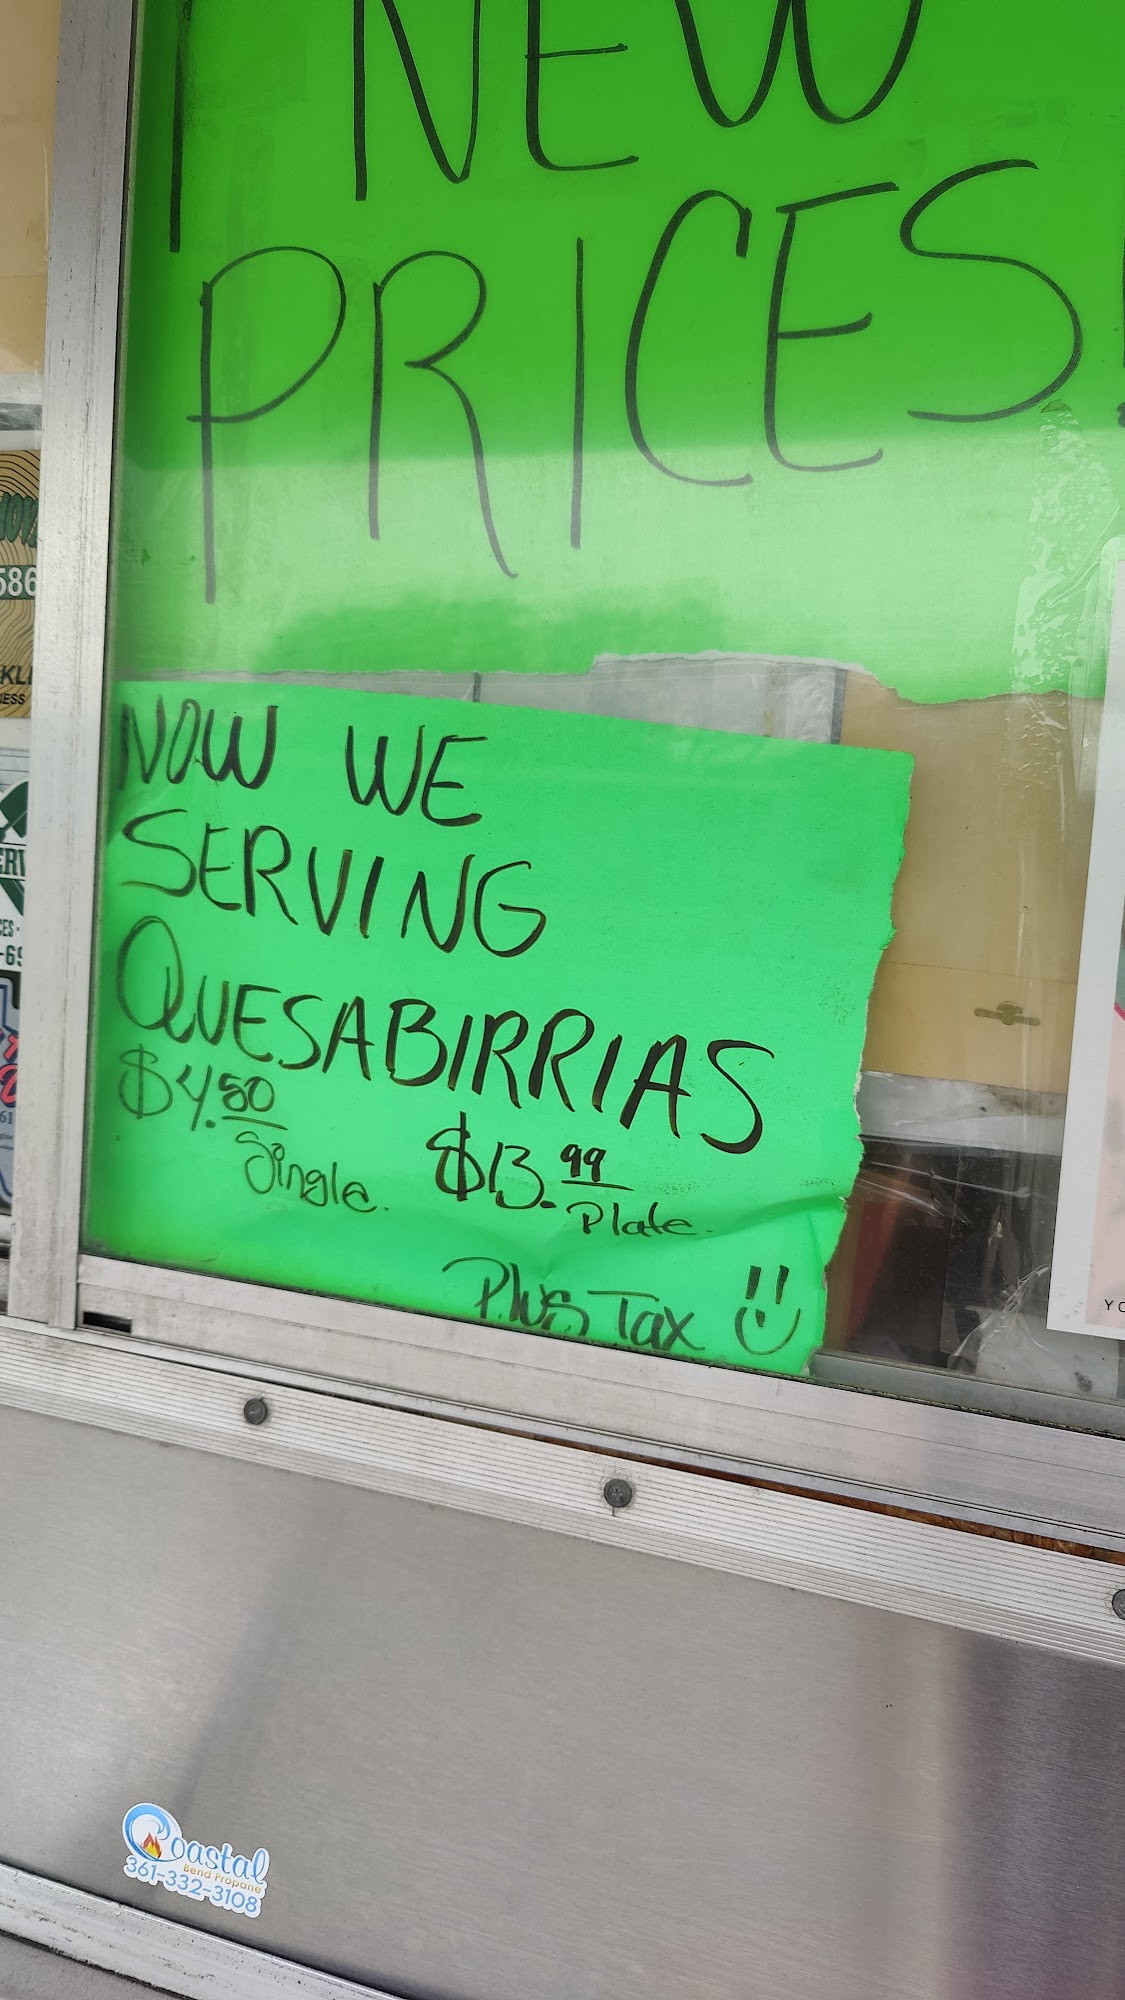 NEW
PRICES!
NOW WE
SERVING
QUESABIRRIAS
$4.50
Single.
$13.99
Plate.
Plus Tax
586
Coastal
Bend Propane
361-332-3108